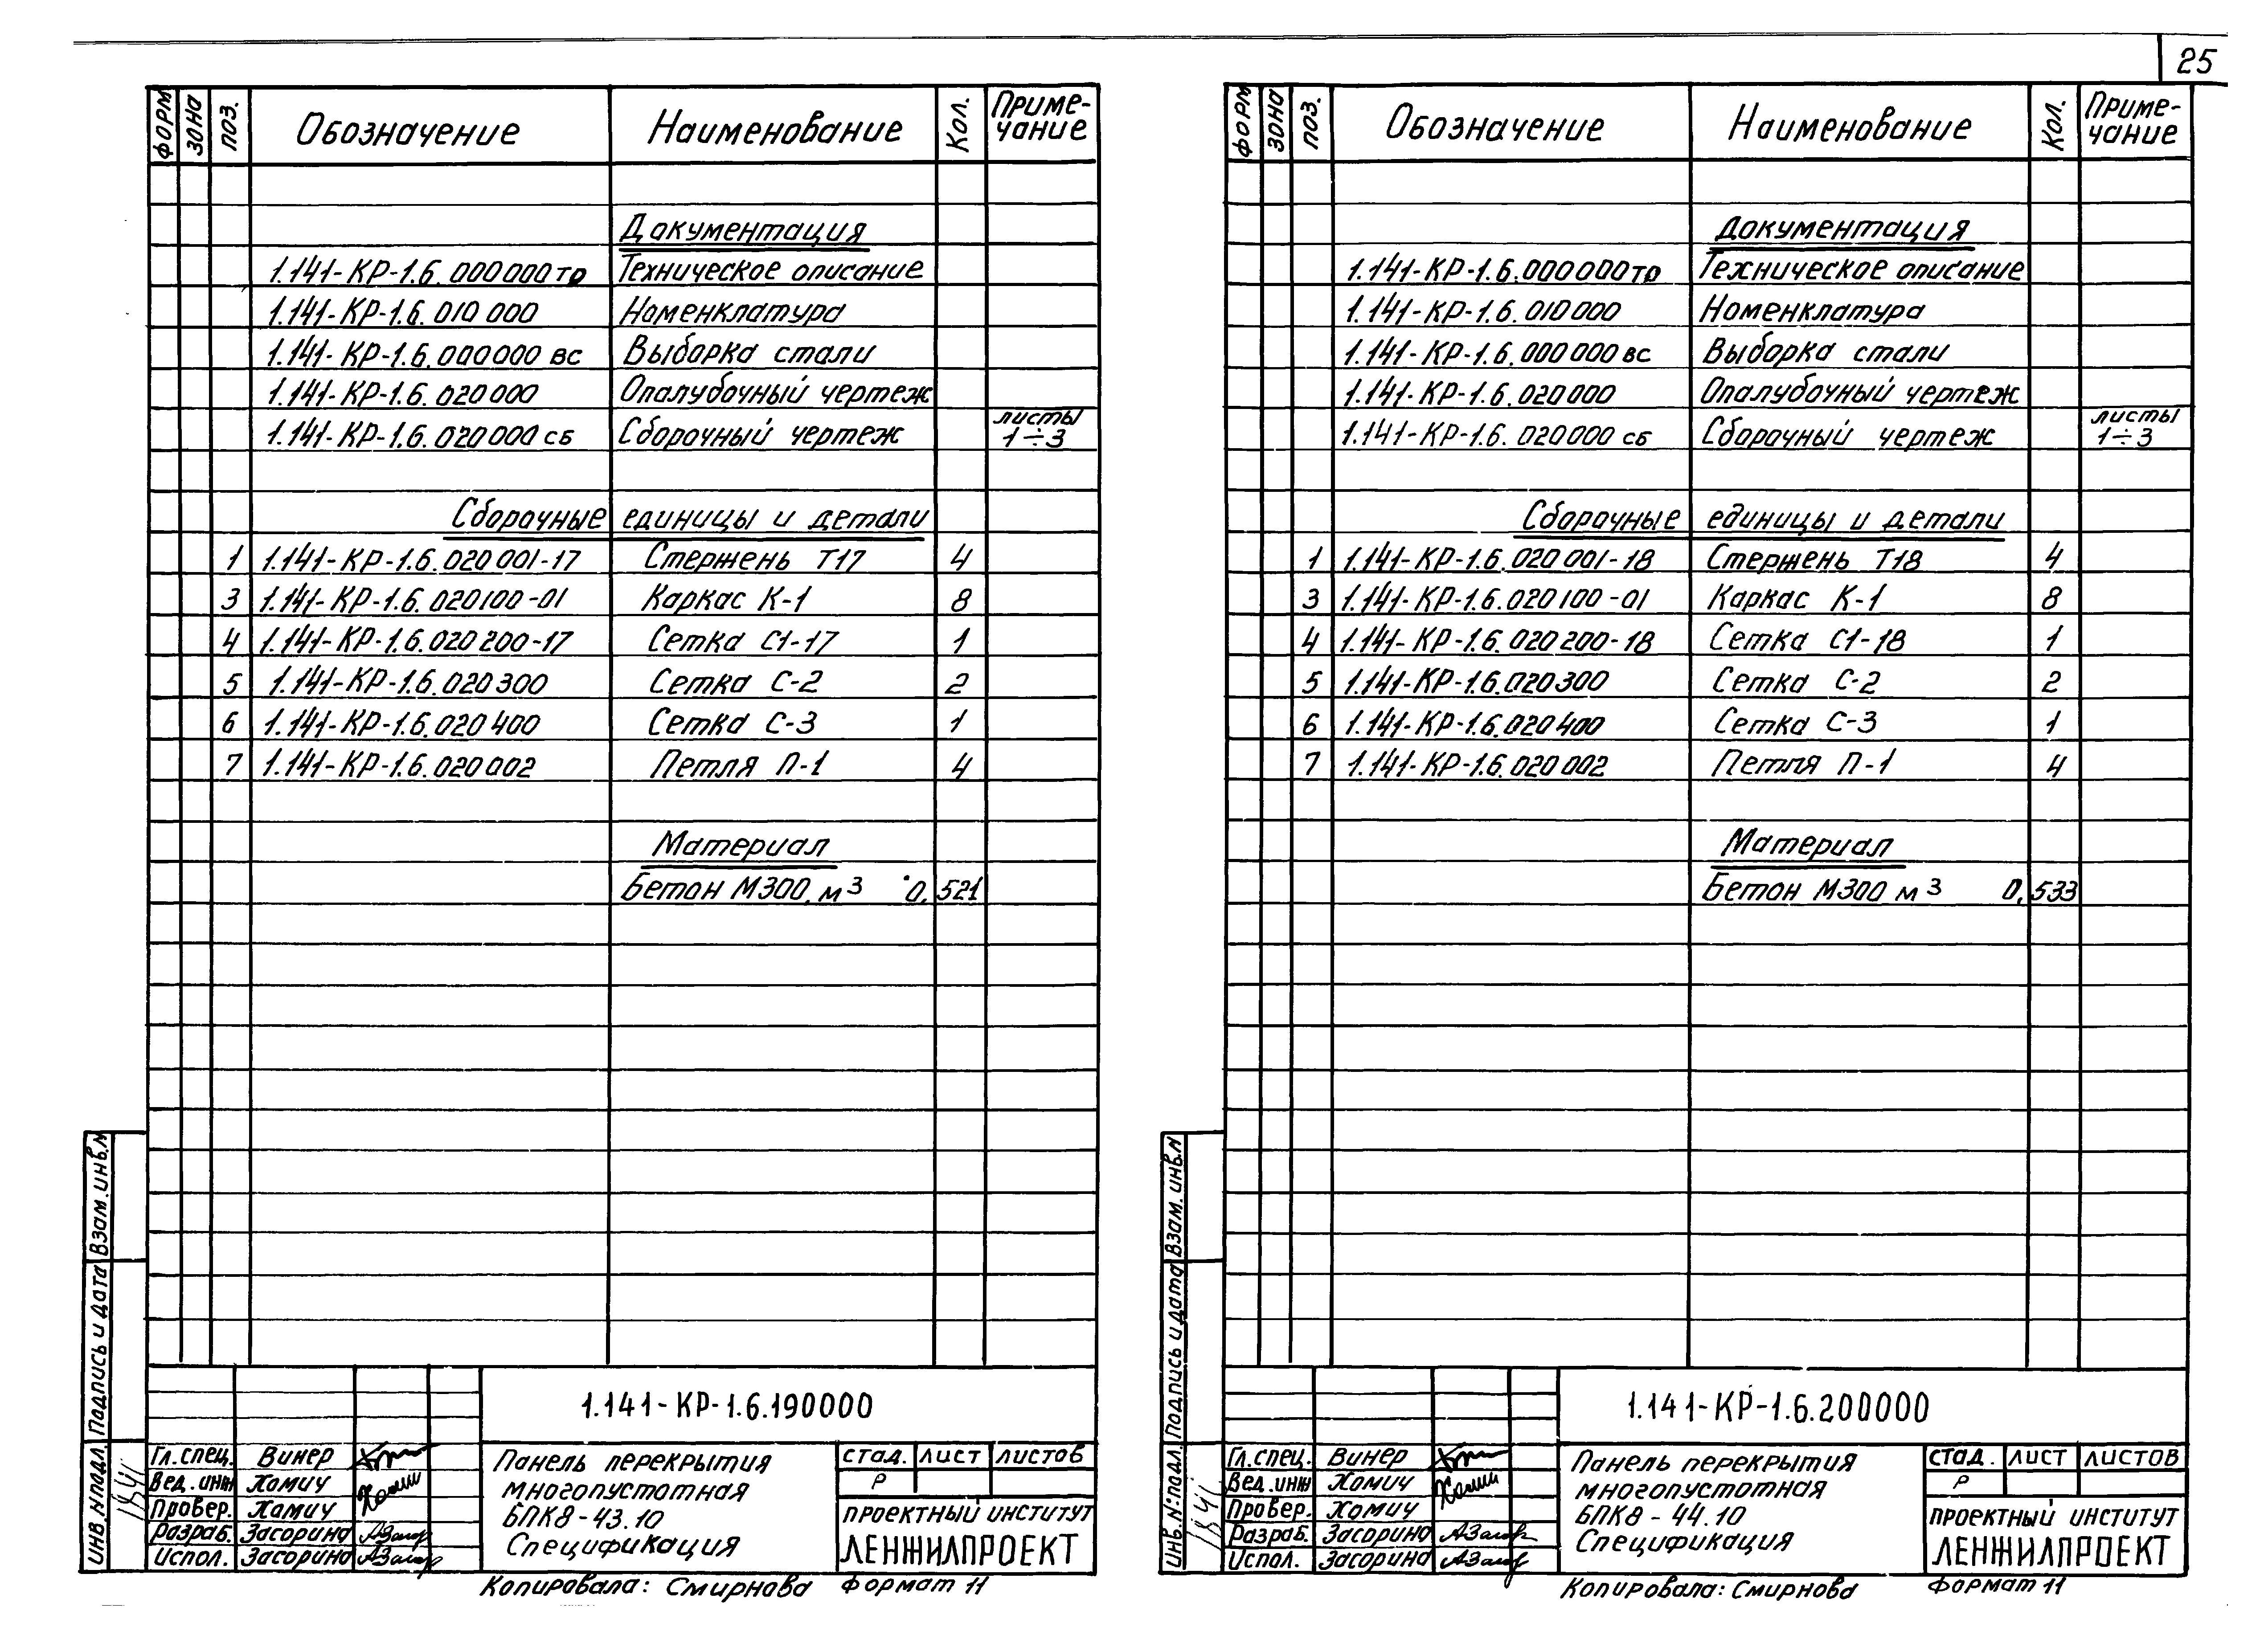 25
ФОРМ ЗОНА ПОЗ. Обозначение Наименование Кол. Приме-
чание
Документация
1.141-КР-1.6.000000ТО Техническое описание
1.141-КР-1.6.010000 Номенклатура
1.141-КР-1.6.000000 ВС Выборка стали
1.141-КР-1.6.020000 Опалубочный чертеж
1.141-КР-1.6.020000 СБ Сборочный чертеж листы 1÷3
Сборочные единицы и детали
1 1.141-КР-1.6.020001-17 Стержень Т17 4
3 1.141-КР-1.6.020100-01 Каркас К-1 8
4 1.141-КР-1.6.020200-17 Сетка С1-17 1
5 1.141-КР-1.6.020300 Сетка С-2 2
6 1.141-КР-1.6.020400 Сетка С-3 1
7 1.141-КР-1.6.020002 Петля П-1 4
Материал
Бетон М300, м3 0,521
Взам. инв. N
Подпись и дата
ИНВ. N подл.
1841
1.141-КР-1.6.190000
Гл. спец. Винер
Вед. инж Хамич
Провер. Хамич
Разраб. Засорина
Испол. Засорина
Панель перекрытия
многопустотная
БПК8-43.10
Спецификация
стад. лист листов
Р
ПРОЕКТНЫЙ ИНСТИТУТ
ЛЕНЖИЛПРОЕКТ
Копировала: Смирнова Формат 11
ФОРМ ЗОНА ПОЗ. Обозначение Наименование Кол. Приме-
чание
Документация
1.141-КР-1.6.000000ТО Техническое описание
1.141-КР-1.6.010000 Номенклатура
1.141-КР-1.6.000000 ВС Выборка стали
1.141-КР-1.6.020000 Опалубочный чертеж
1.141-КР-1.6.020000 СБ Сборочный чертеж листы 1÷3
Сборочные единицы и детали
1 1.141-КР-1.6.020001-18 Стержень Т18 4
3 1.141-КР-1.6.020100-01 Каркас К-1 8
4 1.141-КР-1.6.020200-18 Сетка С1-18 1
5 1.141-КР-1.6.020300 Сетка С-2 2
6 1.141-КР-1.6.020400 Сетка С-3 1
7 1.141-КР-1.6.020002 Петля П-1 4
Материал
Бетон М300 м3 0,533
Взам. инв. N
Подпись и дата
ИНВ. N° подл.
1841
1.141-КР-1.6.200000
Гл. спец. Винер
Вед. инж Хамич
Провер. Хамич
Разраб. Засорина
Испол. Засорина
Панель перекрытия
многопустотная
БПК8-44.10
Спецификация
стад. лист листов
Р
ПРОЕКТНЫЙ ИНСТИТУТ
ЛЕНЖИЛПРОЕКТ
Копировала: Смирнова Формат 11